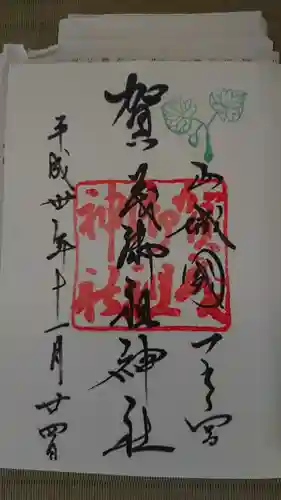 山城國一之宮
賀茂御祖神社
平成廿年十一月廿四日
賀茂
御祖
神社